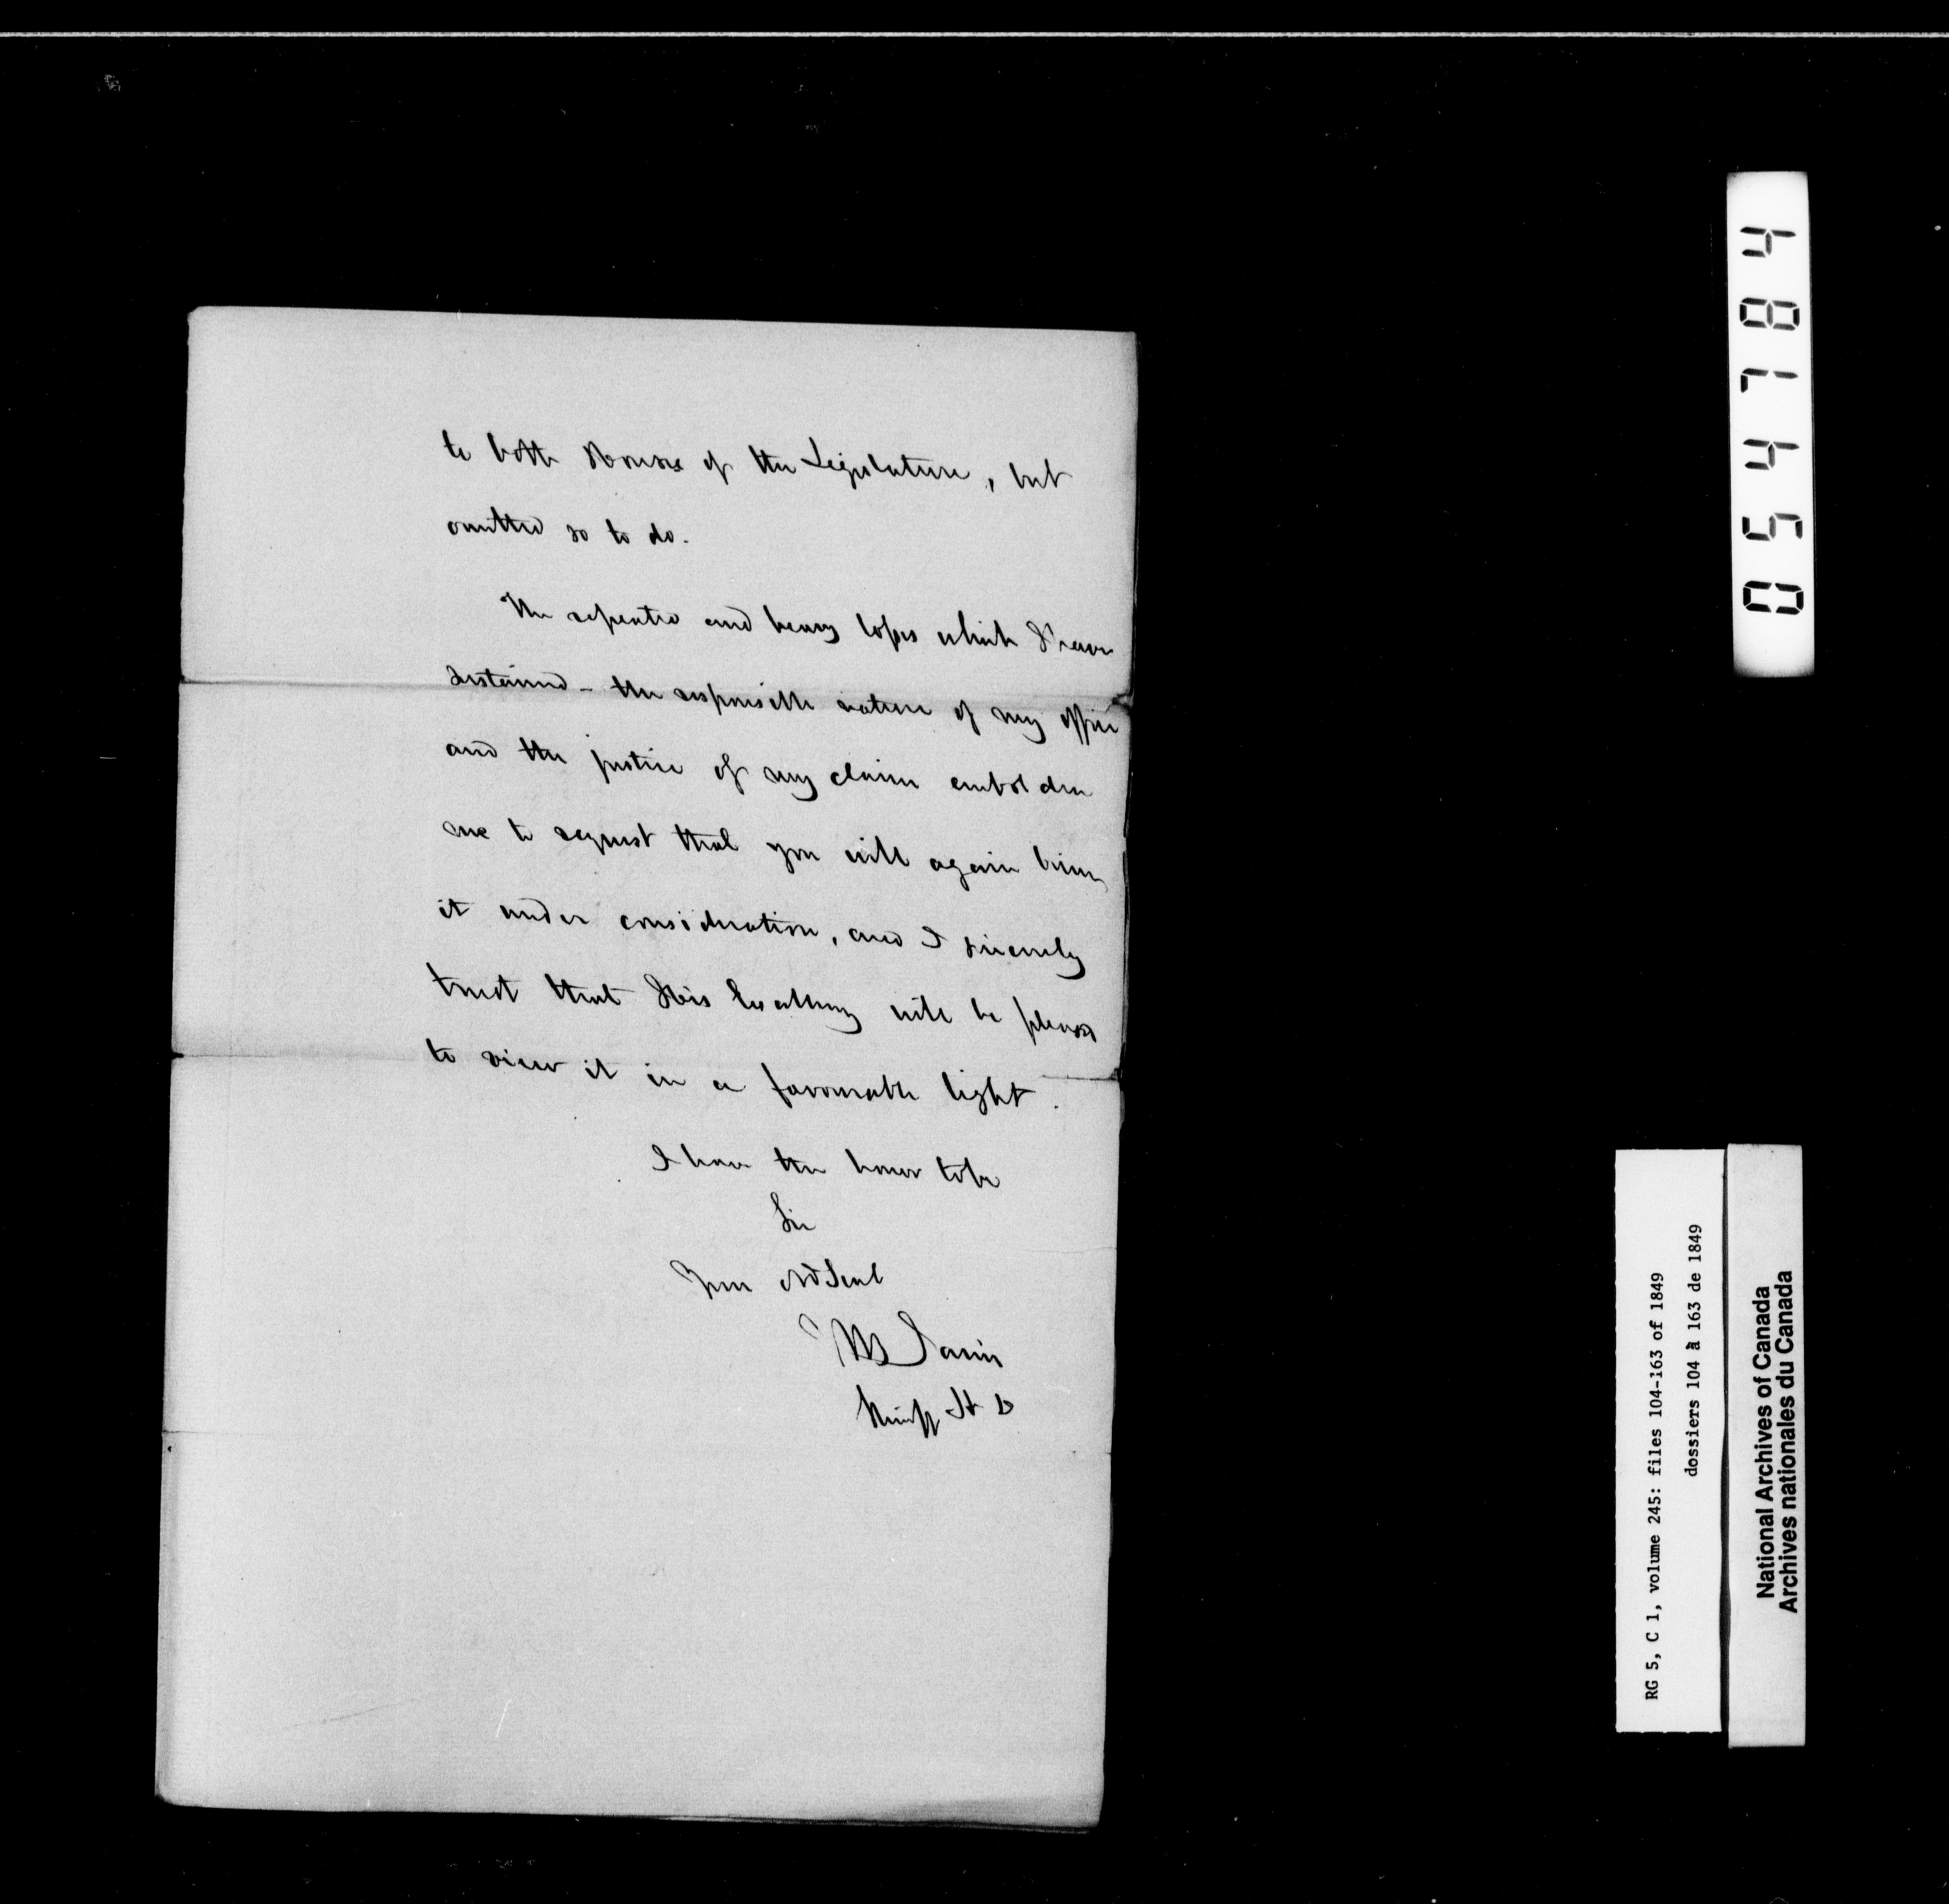 to both Houses of the Legislature, but
omitted so to do.
The repeated and heavy losses which I have
sustained - the responsible nature of my office
and the justice of my claim embolden
me to request that you will again bring
it under consideration, and I sincerely
trust that His Excellency will be pleased
to view it in a favourable light.
I have the honor to be
Sir
Your Obt Servt
Sheriff H D
054784
RG 5, C 1, volume 245: files 104-163 of 1849
dossiers 104 à 163 de 1849
National Archives of Canada
Archives nationales du Canada